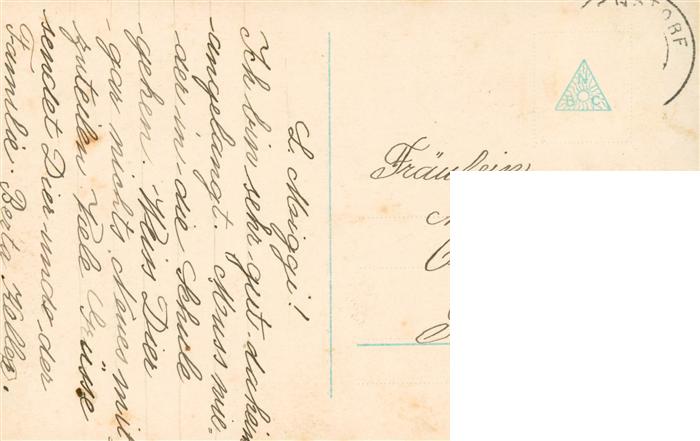 L. Miggi!
Ich bin sehr gut daheim
angelangt. Muss wie-
der in die Schule
gehen. Weiss Dier
gar nichts Neues mit
zuteilen. Viele Grüsse
sendet Dier und der
Familie. Berta Keller.
Fräulein
N
B C